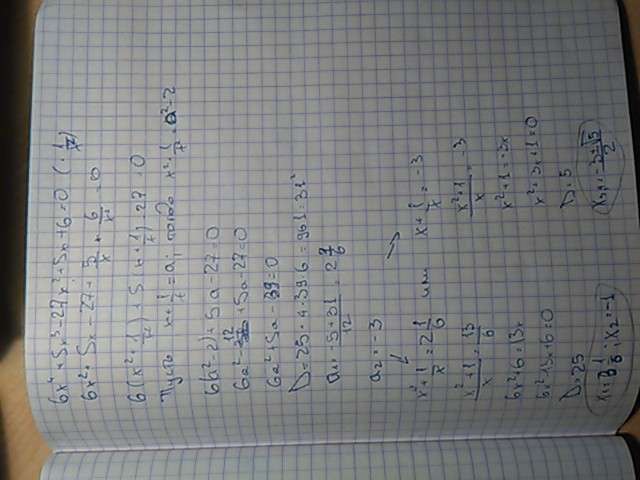 6x⁴+5x³-27x²+5x+6=0 (·1/x²)
6x²+5x-27+5/x+6/x²=0
6(x²+1/x²)+5(x+1/x)-27=0
Пусть x+1/x=a; тогда x²+1/x²=a²-2
6(a²-2)+5a-27=0
6a²-12+5a-27=0
6a²+5a-39=0
D=25+4·39·6=961=31²
a₁=-5+31/12=2 1/6
a₂=-3
x+1/x=2 1/6 или x+1/x=-3
x²+1/x=13/6 x²+1/x=-3
6x²+6=13x x²+1=-3x
6x²-13x+6=0 x²+3x+1=0
D=25 D=5
x₁=3 1/3; x₂=-1 x=-3±√5/2